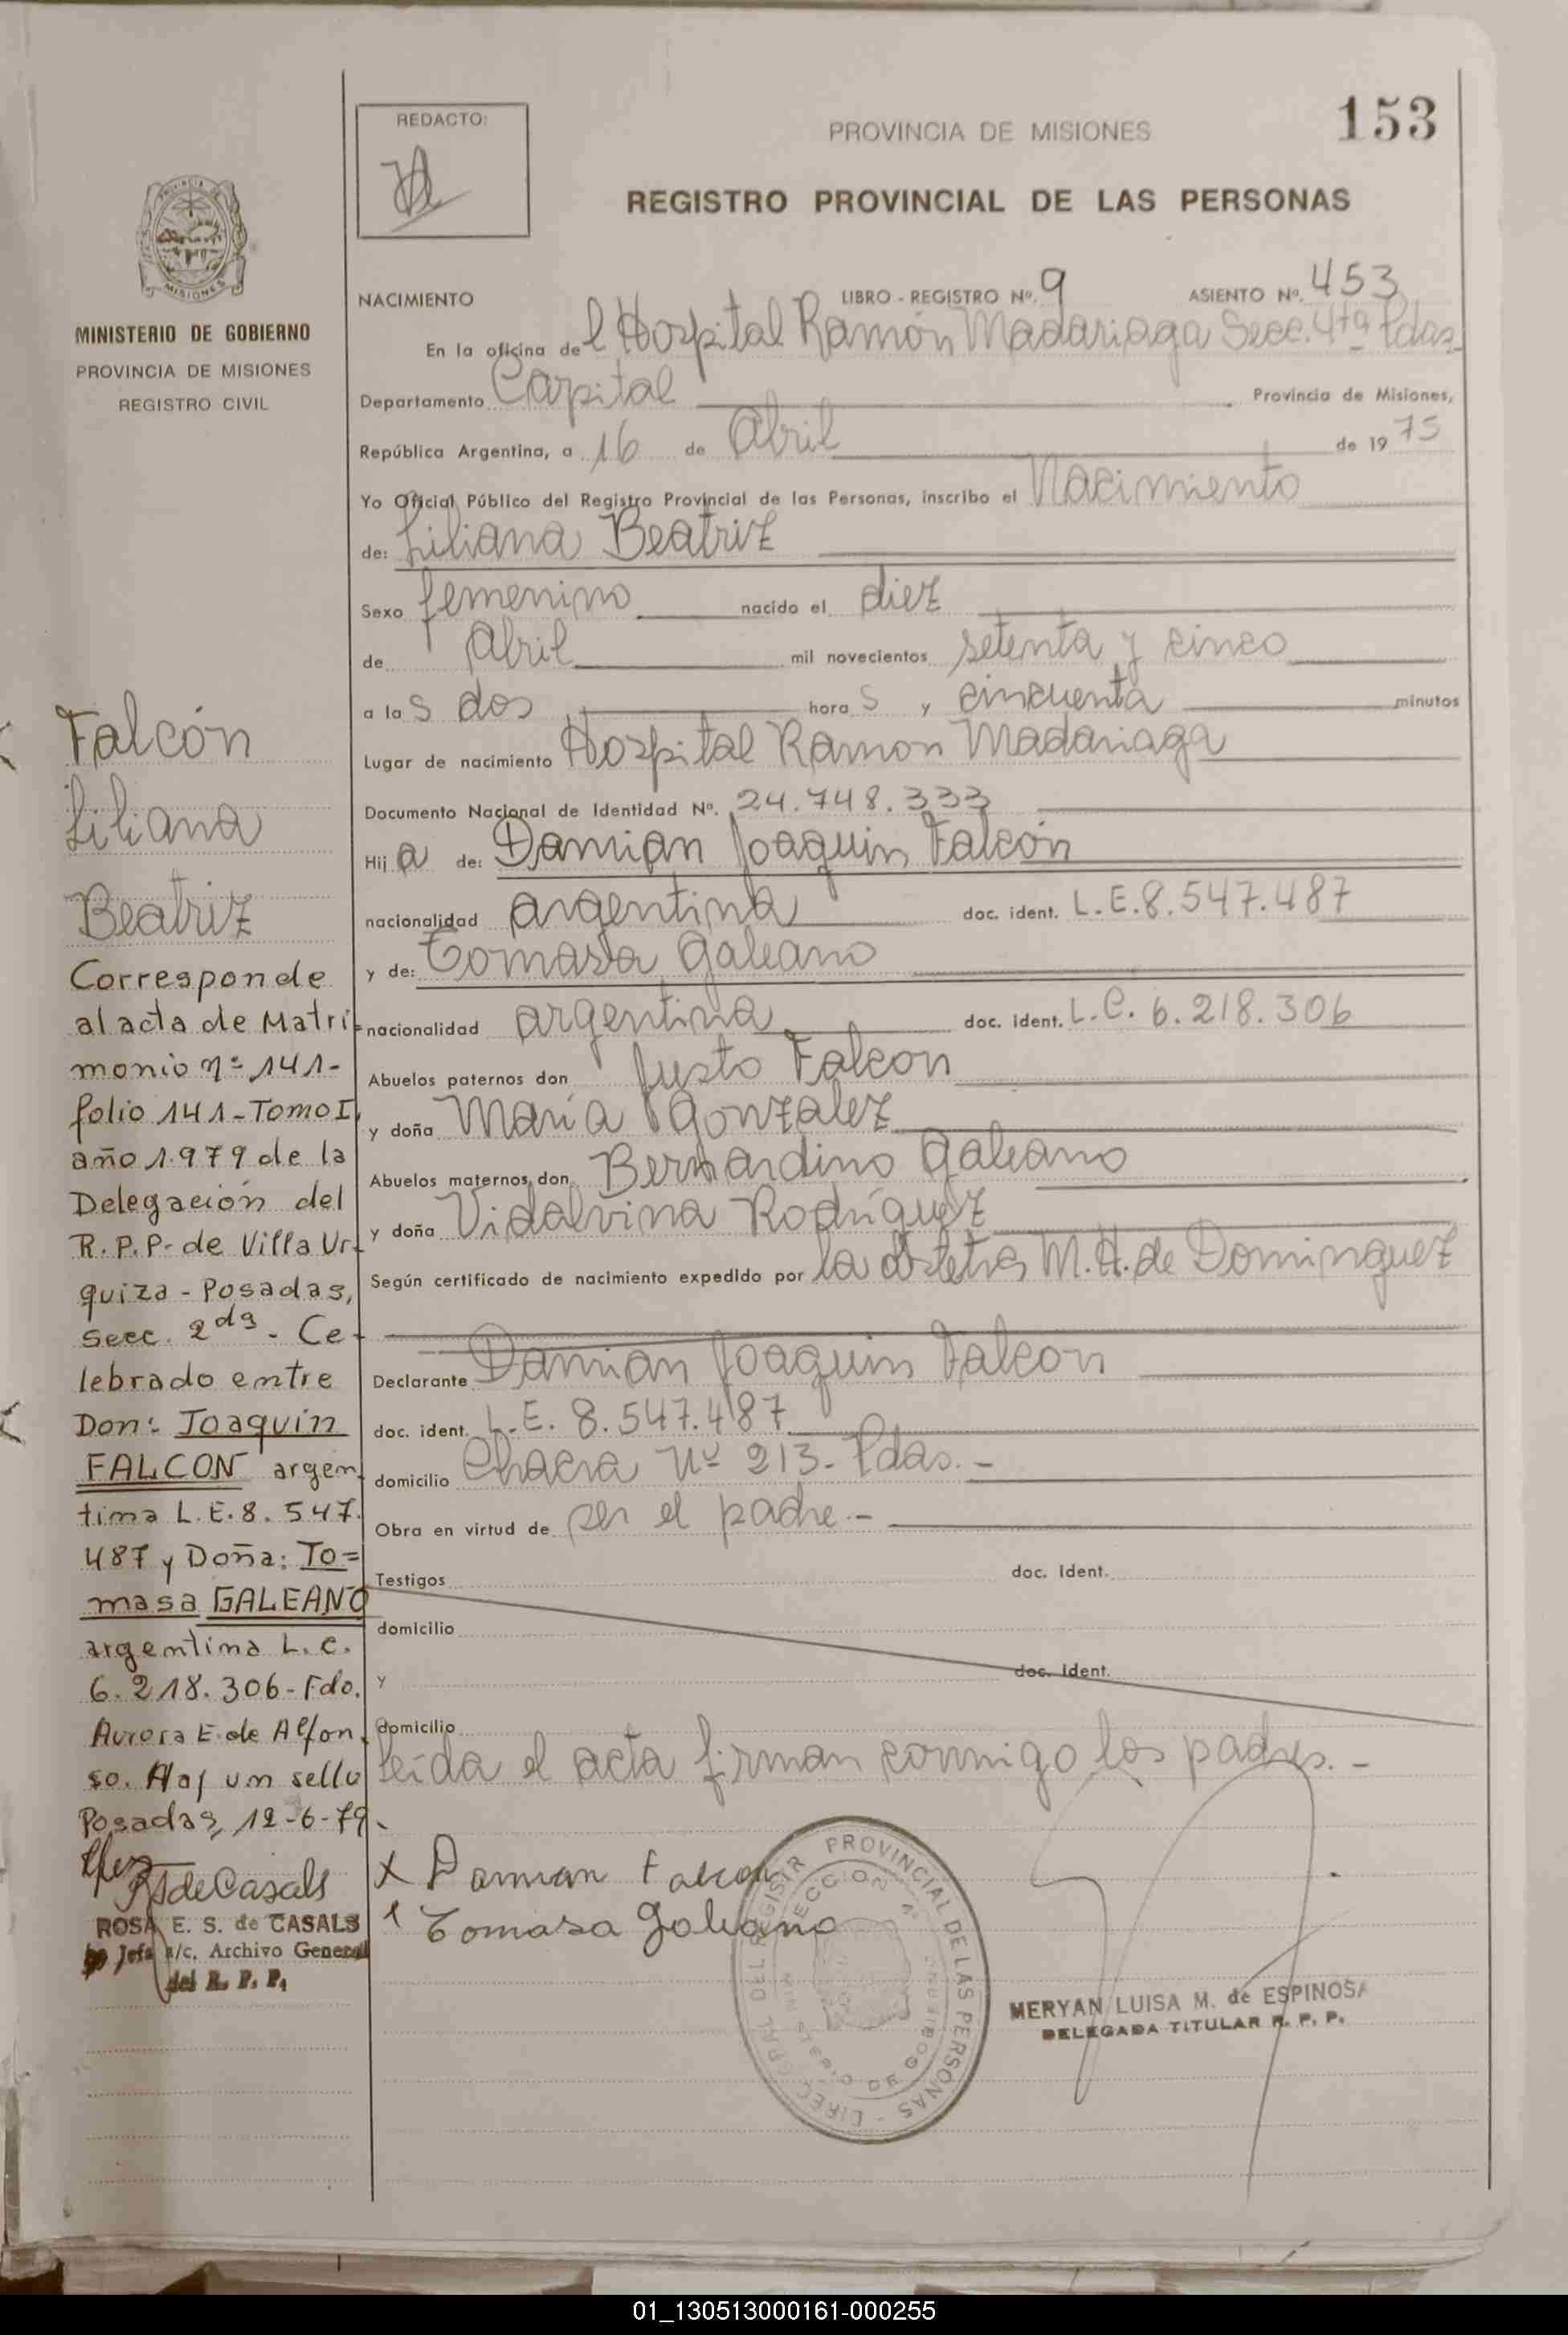 153
REDACTO:
PROVINCIA DE MISIONES
REGISTRO PROVINCIAL DE LAS PERSONAS
MISIONES
MINISTERIO DE GOBIERNO
PROVINCIA DE MISIONES
REGISTRO CIVIL
NACIMIENTO LIBRO - REGISTRO Nº. 9 ASIENTO Nº. 453
En la oficina del Hospital Ramón Madariaga Secc. 4ta Pdas.
Departamento Capital Provincia de Misiones,
República Argentina, a 16 de Abril de 1975
Yo Oficial Público del Registro Provincial de las Personas, inscribo el Nacimiento
de: Liliana Beatriz
Sexo femenino nacido el diez
de Abril mil novecientos setenta y cinco
a las dos horas y cincuenta minutos
Lugar de nacimiento Hospital Ramon Madariaga
Documento Nacional de Identidad Nº. 24.748.333
Hija de: Damian Joaquin Falcón
nacionalidad argentina doc. ident. L.E.8.547.487
y de: Tomasa Galeano
nacionalidad argentina doc. ident. L.C. 6.218.306
Abuelos paternos don Justo Falcon
y doña María Gonzalez
Abuelos maternos don Bernardino Galeano
y doña Vidalvina Rodríguez
Según certificado de nacimiento expedido por la obstetra M.H. de Dominguez
Declarante Damian Joaquin Falcon
doc. ident. L.E. 8.547.487
domicilio Chacra Nº 213. Pdas. -
Obra en virtud de ser el padre. -
Testigos doc. Ident.
domicilio
y doc. Ident.
domicilio
Leída el acta firman conmigo los padres. -
X Damian Falcon
Tomasa Galeano
DIREC. GRAL DEL REGISTR PROVINCIAL DE LAS PERSONAS
SECCION 4ª
MINISTERIO DE GOBIERNO
MERYAN LUISA M. de ESPINOSA
DELEGADA TITULAR R. P. P.
Falcón
Liliana
Beatriz
Corresponde
al acta de Matri=
monio nº 141-
folio 141-Tomo I,
año 1.979 de la
Delegación del
R.P.P. de Villa Ur-
quiza - Posadas,
Secc. 2da - Ce-
lebrado entre
Don: Joaquin
FALCON argen
tina L.E.8.547.
487 y Doña: To=
masa GALEANO
argentina L.C.
6.218.306-Fdo.
Aurora E. de Alfon
so. Hay un sello
Posadas, 12-6-79.
RSdeCasals
ROSA E. S. de CASALS
Jefa a/c. Archivo General
del R. P. P.
01_130513000161-000255